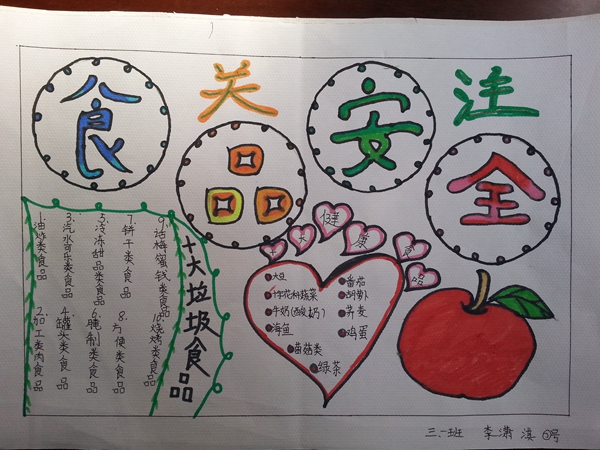 食关安注
品全
1.油炸类食品
2.加工类肉食品
3.汽水可乐类食品
4.罐头类食品
5.冷冻甜品类食品
6.腌制类食品
7.饼干类食品
8.方便类食品
9.话梅蜜钱类食品
10.烧烤类食品
十大垃圾食品
十大健康食品
大豆
十字花科蔬菜
牛奶(酸奶)
海鱼
菌菇类
番茄
胡萝卜
荞麦
鸡蛋
绿茶
三.一班 李潇滨 ⑥号